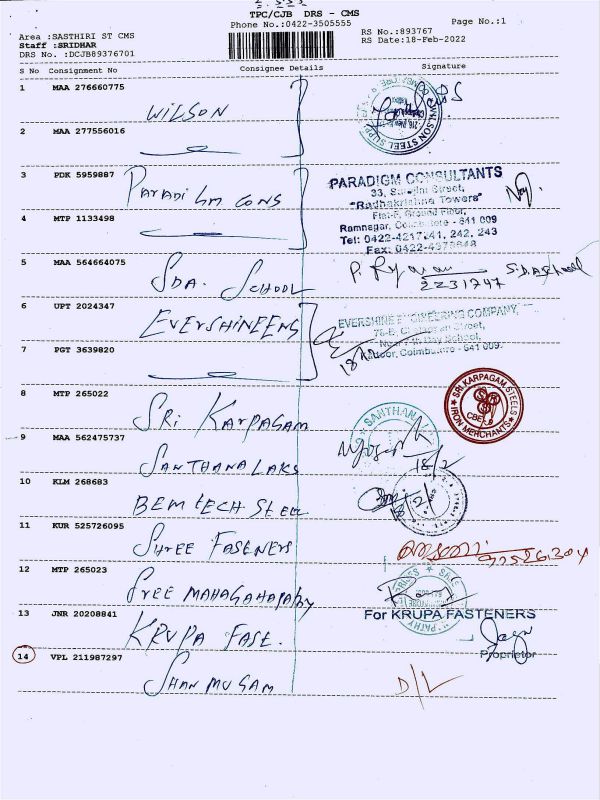 TPC/CJB DRS - CMS
Phone No.:0422-3505555
Page No.:1
Area :SASTHIRI ST CMS
RS No.:893767
Staff :SRIDHAR
RS Date:18-Feb-2022
DRS No. :DCJB89376701
S No Consignment No Consignee Details Signature
1 MAA 276660775
WILSON
2 MAA 277556016
3 PDK 5959887
PARADIGM CONS
PARADIGM CONSULTANTS
33, Street,
"Radhakrishna Towers"
Flat-F, Ground Floor,
4 MTP 1133498
Ramnagar, Coimbatore - 641 009
Tel: 0422-4217241, 242, 243
Fax: 0422-4372848
5 MAA 564664075
SDA. SCHOOL
2231747
6 UPT 2024347
EVERSHINE ENG
EVERSHINE ENGINEERING COMPANY,
Street,
7 PGT 3639820
Coimbatore - 641 009.
8 MTP 265022
SRI KARPAGAM
SRI KARPAGAM STEELS
CBE
IRON MERCHANTS
9 MAA 562475737
SANTHANA LAKS
SANTHANA
18/2
10 KLM 268683
BEMTECH STEEL
18/2/
11 KUR 525726095
SHREE FASTENERS
12 MTP 265023
SREE MAHAGANAPATHY
13 JNR 20208841
KRUPA FAST.
For KRUPA FASTENERS
Proprietor
14 VPL 211987297
SHANMUGAM
D/L